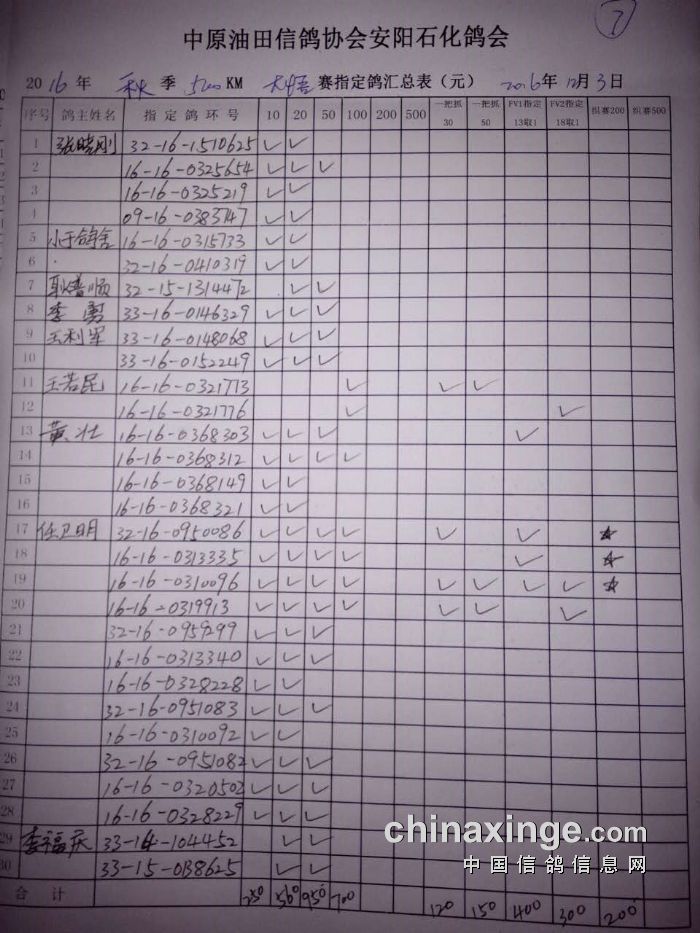 7
中原油田信鸽协会安阳石化鸽会
2016年 秋季 500KM 大悟赛指定鸽汇总表（元） 2016年12月3日
序号 鸽主姓名 指定鸽环号 10 20 50 100 200 500 一把抓30 一把抓50 FV1指定13取1 FV2指定18取1 组赛200 组赛500
1 张晓刚 32-16-1510625 ✓ ✓
2 16-16-0325654 ✓ ✓ ✓
3 16-16-0325219 ✓ ✓
4 09-16-0383747 ✓ ✓
5 小于鸽舍 16-16-0315733 ✓ ✓
6 32-16-0410319 ✓ ✓
7 耿普顺 32-15-1314472 ✓ ✓
8 李勇 33-16-0146329 ✓ ✓ ✓
9 王利军 33-16-0148068 ✓ ✓ ✓
10 33-16-0152249 ✓ ✓ ✓
11 王若昆 16-16-0321773 ✓ ✓ ✓
12 16-16-0321776 ✓ ✓
13 黄壮 16-16-0368303 ✓ ✓ ✓ ✓
14 16-16-0368312 ✓ ✓ ✓ ✓
15 16-16-0368149 ✓ ✓
16 16-16-0368321 ✓ ✓
17 任卫明 32-16-0950086 ✓ ✓ ✓ ✓ ✓ ✓ ☆
18 16-16-0313335 ✓ ✓ ✓ ✓ ✓ ☆
19 16-16-0310096 ✓ ✓ ✓ ✓ ✓ ✓ ✓ ✓ ☆
20 16-16-0319913 ✓ ✓ ✓ ✓ ✓ ✓ ✓
21 32-16-0959299 ✓ ✓ ✓
22 16-16-0313340 ✓ ✓ ✓
23 16-16-0328228 ✓ ✓
24 32-16-0951083 ✓ ✓ ✓
25 16-16-0310092 ✓ ✓
26 32-16-0951082 ✓ ✓ ✓
27 16-16-0320502 ✓ ✓ ✓
28 16-16-0328229 ✓ ✓ ✓
29 李福庆 33-14-104452 ✓ ✓
30 33-15-0138625 ✓ ✓
合计 250 560 950 700 120 150 400 300 200
chinaxinge.com
中国信鸽信息网